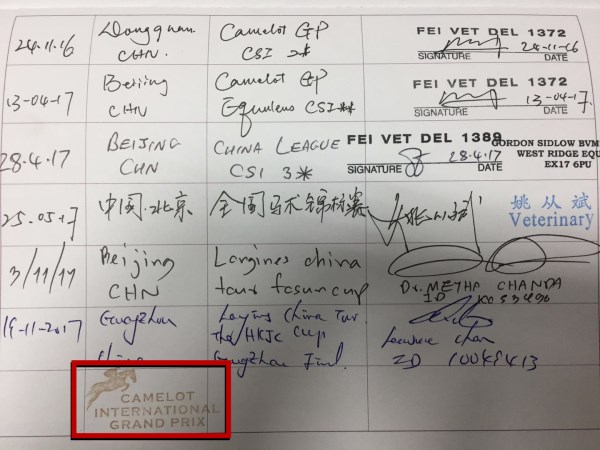 24.11.16 Dongguan CHN. Camelot GP CSI 2*
FEI VET DEL 1372
24-11-16
SIGNATURE DATE
13-04-17 Beijing CHN Camelot GP Equuleus CSI**
FEI VET DEL 1372
13-04-17.
SIGNATURE DATE
28.4.17 BEIJING CHN CHINA LEAGUE CSI 3*
FEI VET DEL 1389
28.4.17
SIGNATURE DATE
GORDON SIDLOW BVM
WEST RIDGE EQU
EX17 6PU
25.05.17 中国.北京 全国马术锦标赛
姚从斌
Veterinary
3/11/17 Beijing CHN Longines china tour fosun cup
Dr. METHA CHANDA
ID
19-11-2017 Guangzhou China Longines China Tur. The HKJC Cup Guangzhou
ID 10049413
CAMELOT
INTERNATIONAL
GRAND PRIX